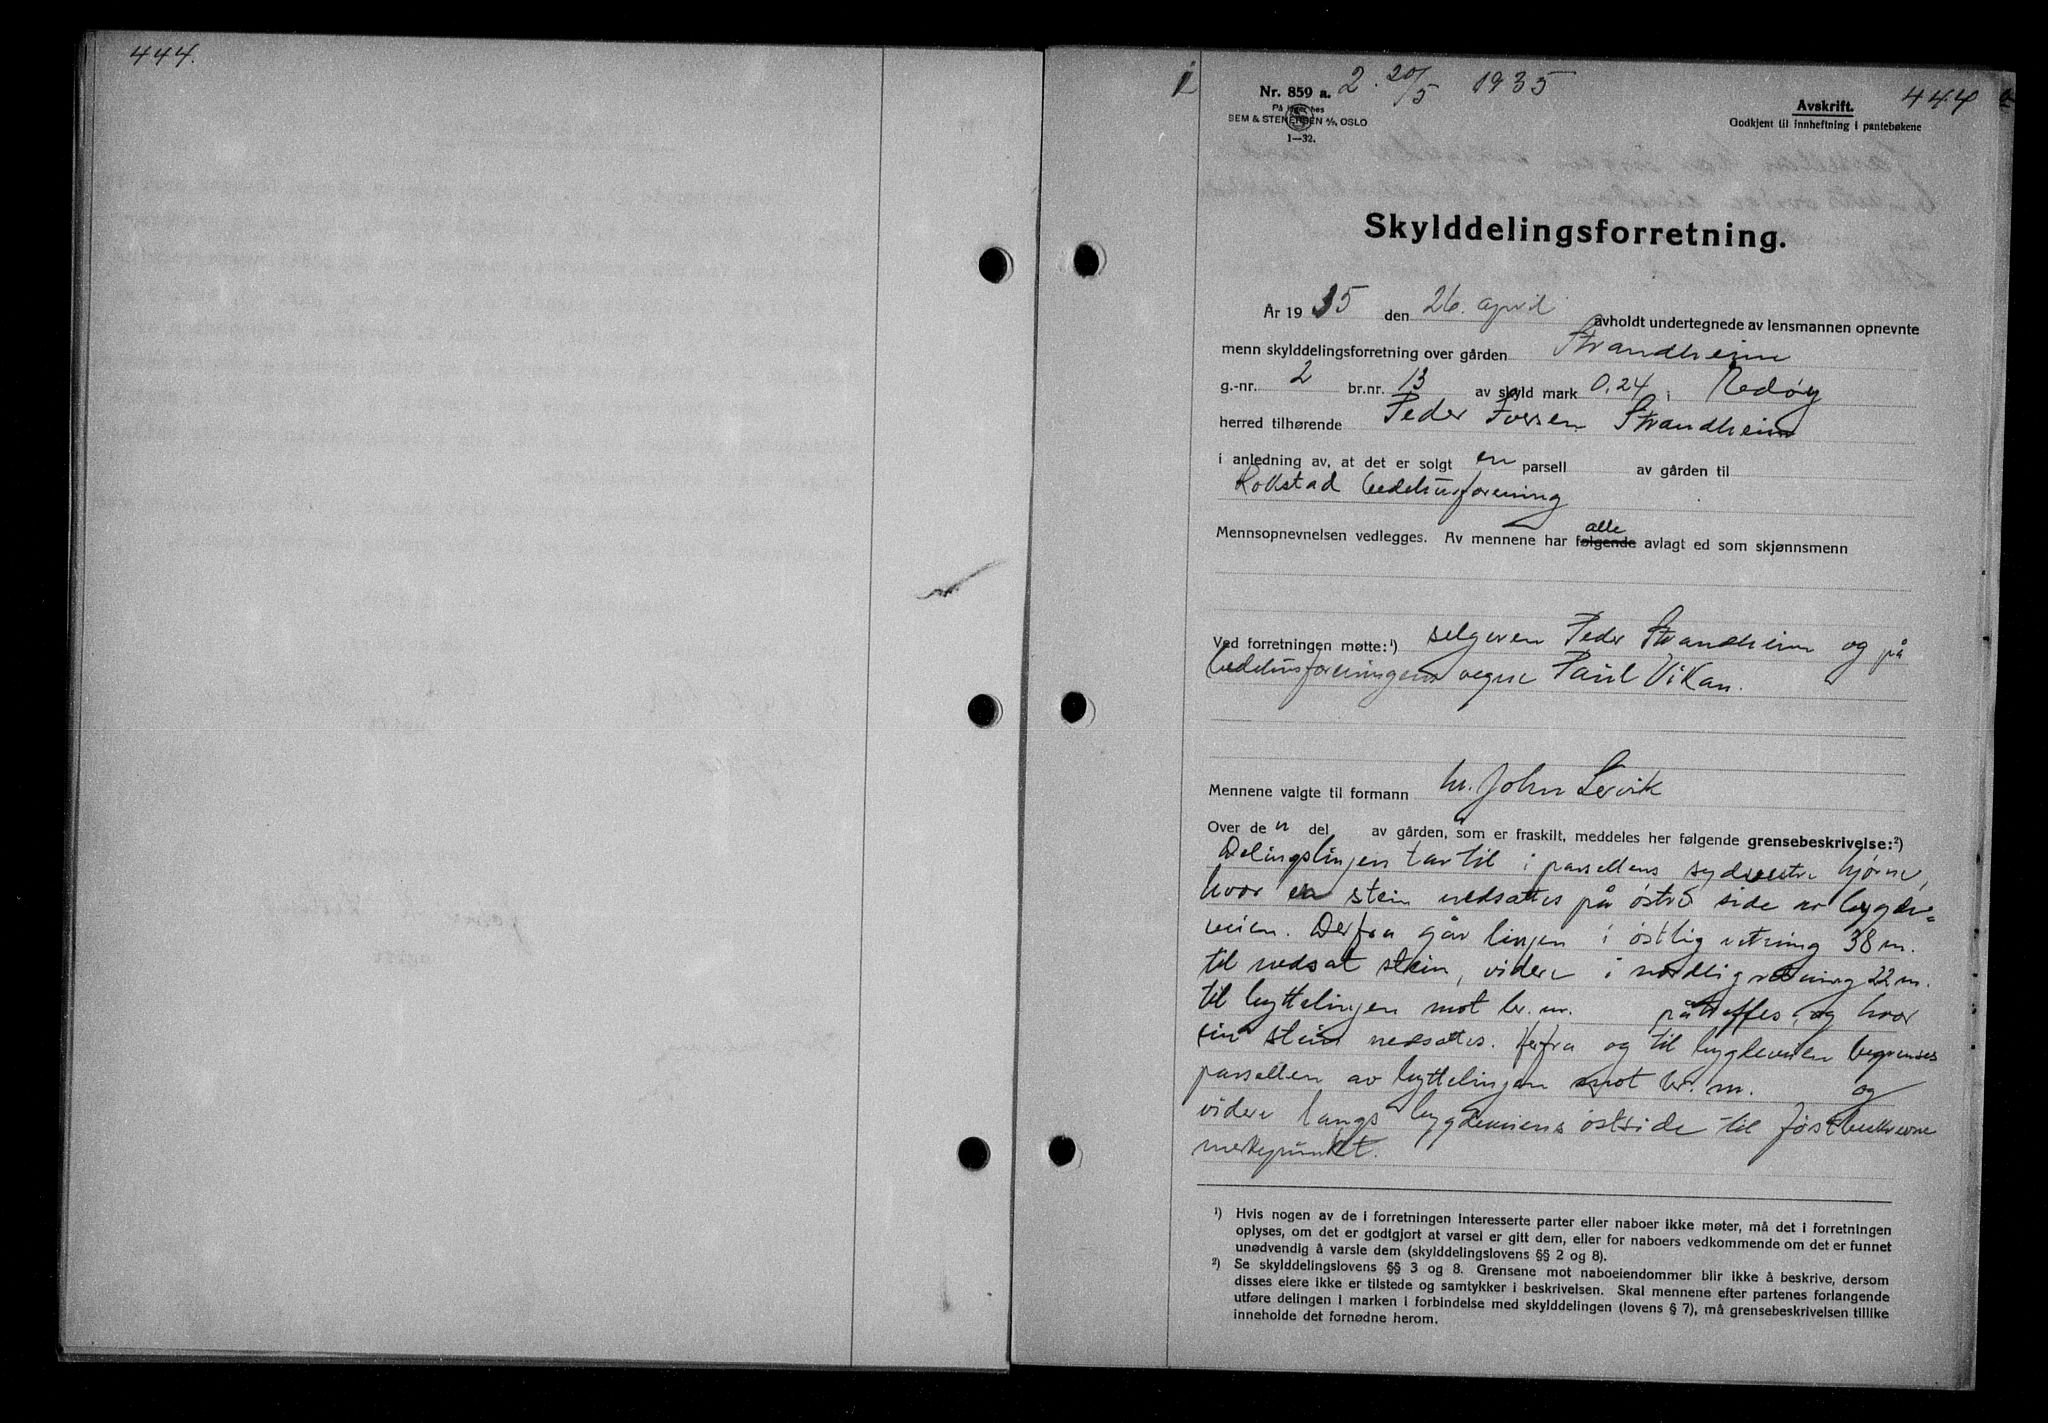 444.
1
Nr. 859 a.
2. 20/5 1935
På lager hos
SEM & STENERSEN A/S, OSLO
1—32.
Avskrift.
444
Godkjent til innheftning i pantebøkene
Skylddelingsforretning.
År 1935 den 26. april avholdt undertegnede av lensmannen opnevnte
menn skylddelingsforretning over gården Strandheim
g.-nr. 2 br.nr. 13 av skyld mark 0.24 i Nedøy
herred tilhørende Peder Iversen Strandheim
i anledning av, at det er solgt en parsell av gården til
Rokstad bedehusforening
Mennsopnevnelsen vedlegges. Av mennene har følgende alle avlagt ed som skjønnsmenn
Ved forretningen møtte:¹) selgeren Peder Strandheim og på
bedehusforeningens vegne Paul Vikan.
Mennene valgte til formann hr. John Lervik
Over den del av gården, som er fraskilt, meddeles her følgende grensebeskrivelse:²)
Delingslinjen tar til i parsellens sydvestre hjørne,
hvor en stein nedsattes på østre side av bygde-
veien. Derfra går linjen i østlig retning 38 m.
til nedsat stein, videre i nordlig retning 22 m.
til byttelinjen mot br. nr. påtreffes, og hvor
en stein nedsattes. Herfra og til bygdeveien begrenses
parsellen av byttelinjen mot br. nr. og
videre langs bygdeveiens østside tilførstbeskrevne
merkepunkt.
¹) Hvis nogen av de i forretningen interesserte parter eller naboer ikke møter, må det i forretningen
oplyses, om det er godtgjort at varsel er gitt dem, eller for naboers vedkommende om det er funnet
unødvendig å varsle dem (skylddelingslovens §§ 2 og 8).
²) Se skylddelingslovens §§ 3 og 8. Grensene mot naboeiendommer blir ikke å beskrive, dersom
disses eiere ikke er tilstede og samtykker i beskrivelsen. Skal mennene efter partenes forlangende
utføre delingen i marken i forbindelse med skylddelingen (lovens § 7), må grensebeskrivelsen tillike
inneholde det fornødne herom.